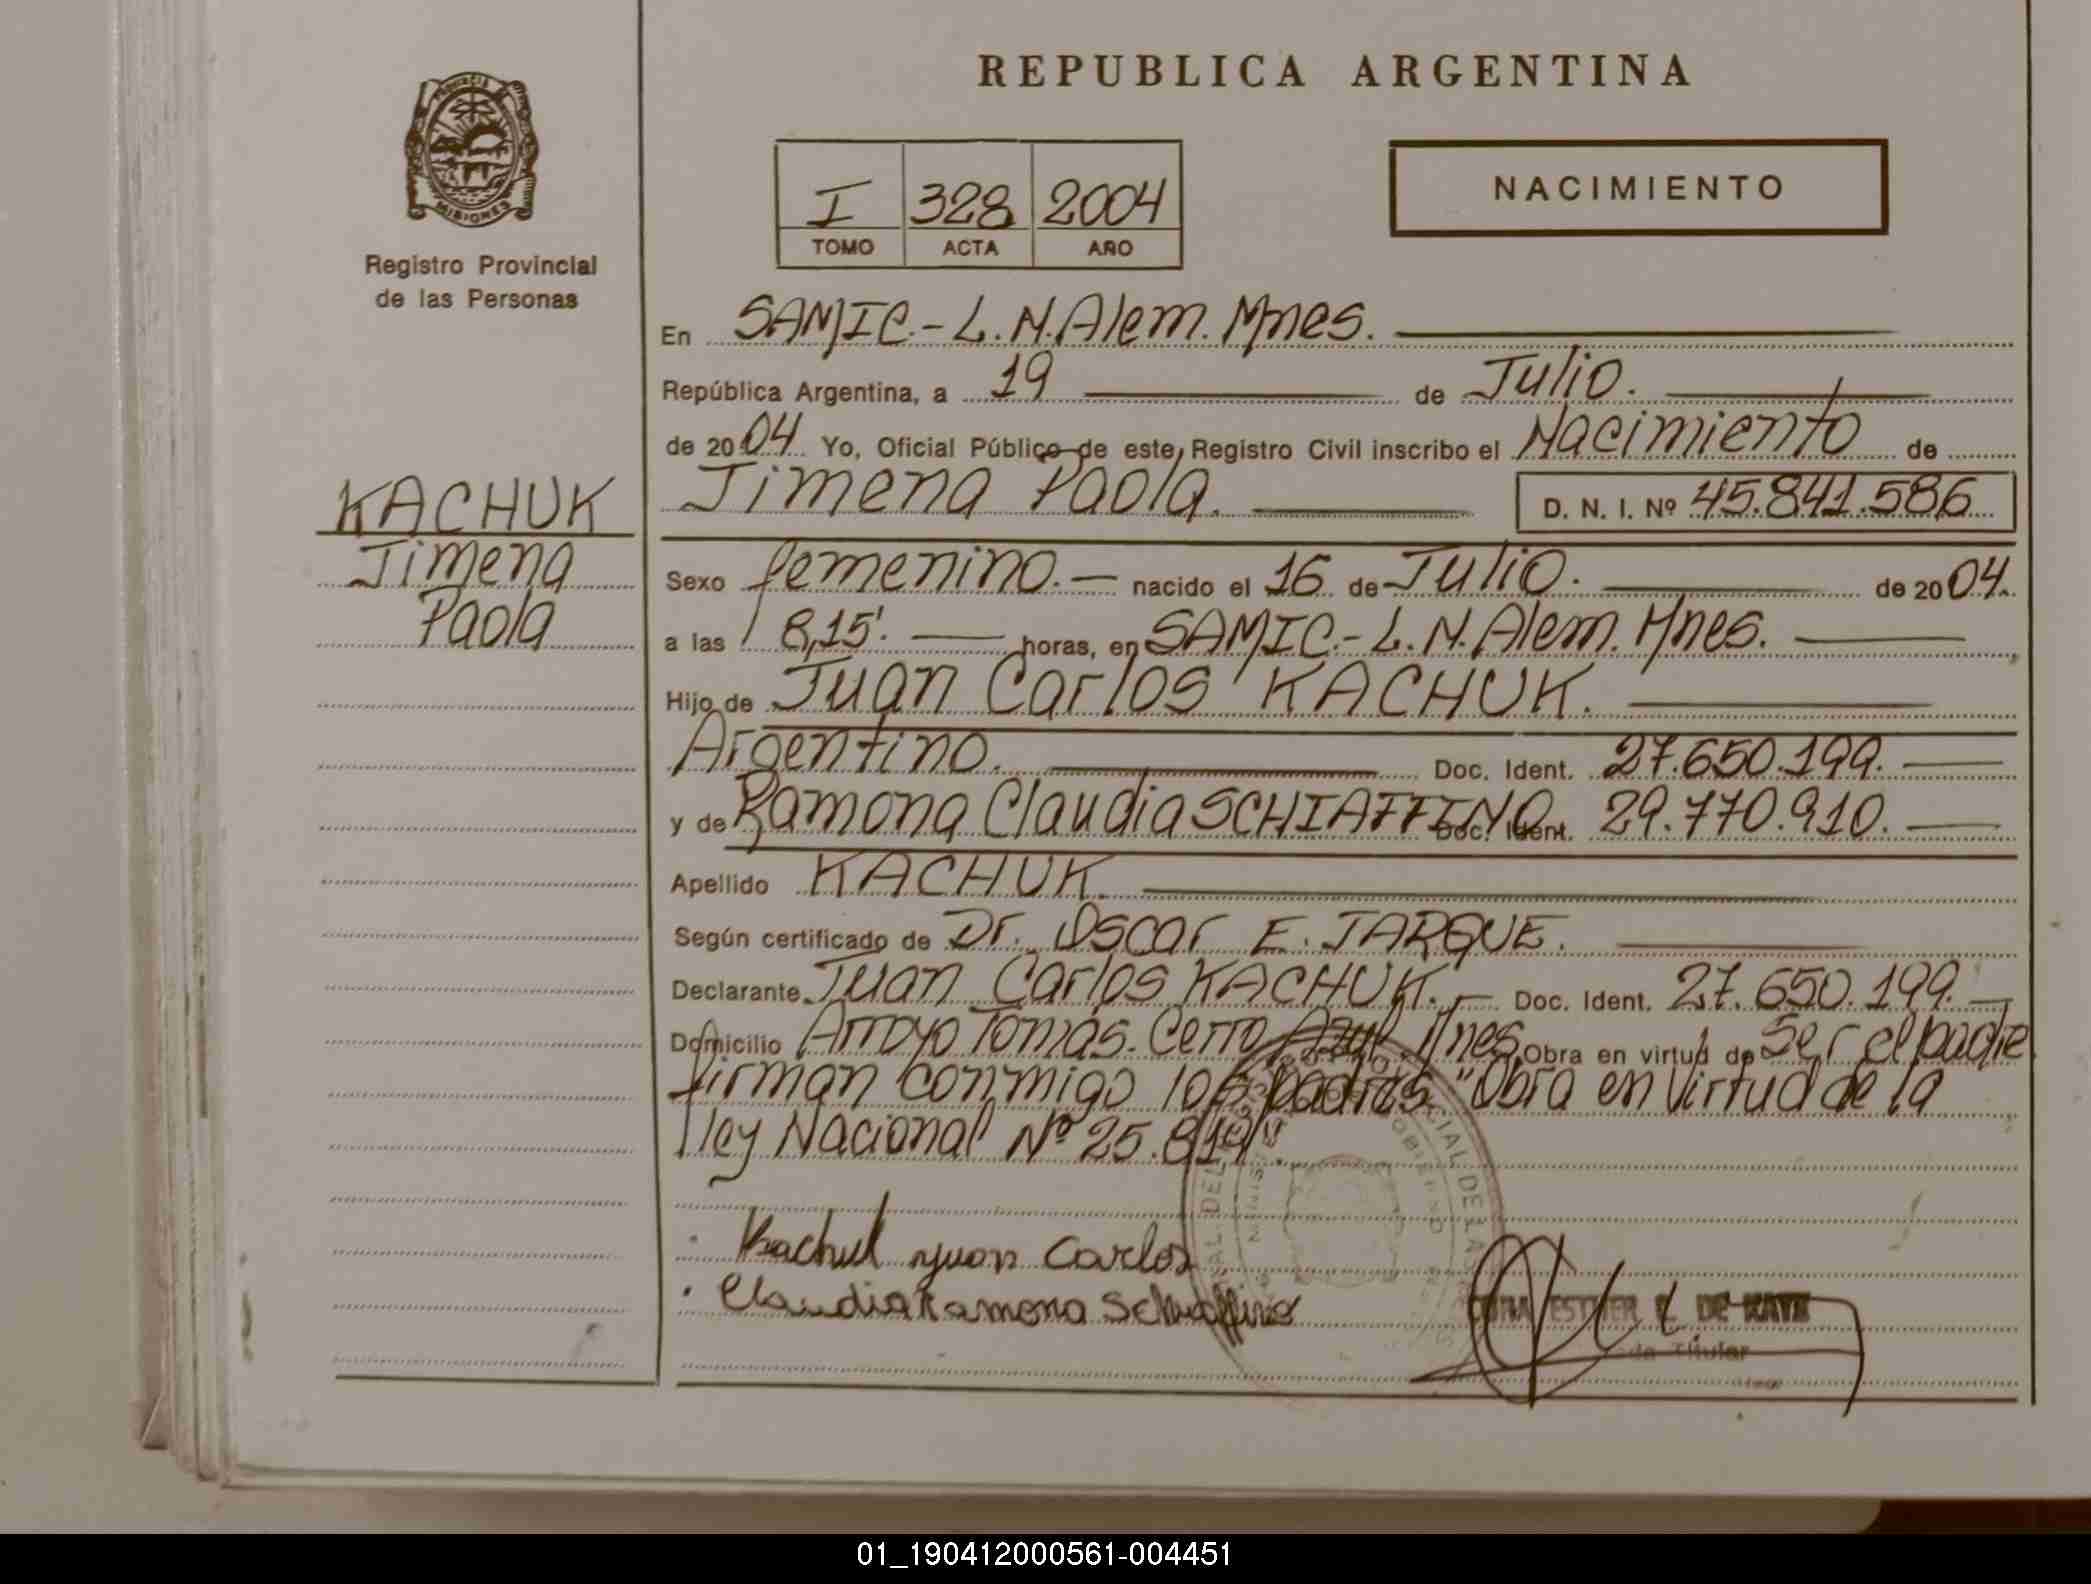 PROVINCIA
MISIONES
Registro Provincial
de las Personas
KACHUK
Jimena
Paola
REPUBLICA ARGENTINA
I 328 2004
TOMO ACTA AÑO
NACIMIENTO
En SAMIC.- L. N. Alem. Mnes.
República Argentina, a 19 de Julio.
de 2004 Yo, Oficial Público de este Registro Civil inscribo el Nacimiento de
Jimena Paola. D. N. I. Nº 45.841.586
Sexo femenino.- nacido el 16 de Julio. de 2004.
a las 8,15'. horas, en SAMIC.- L. N. Alem. Mnes.
Hijo de Juan Carlos KACHUK.
Argentino. Doc. Ident. 27.650.199.
y de Ramona Claudia SCHIAFFINO Doc. Ident. 29.770.910.
Apellido KACHUK.
Según certificado de Dr. Oscar E. JARQUE.
Declarante Juan Carlos KACHUK. Doc. Ident. 27.650.199.
Domicilio Arroyo Tomás. Cerro Azul. Mnes. Obra en virtud de Ser el padre.
firman conmigo los padres "Obra en Virtud de la
ley Nacional Nº 25.819".
Kachuk Juan Carlos
Claudia Ramona Schiaffino
ESTHER E. DE KATZ
Titular
01_190412000561-004451